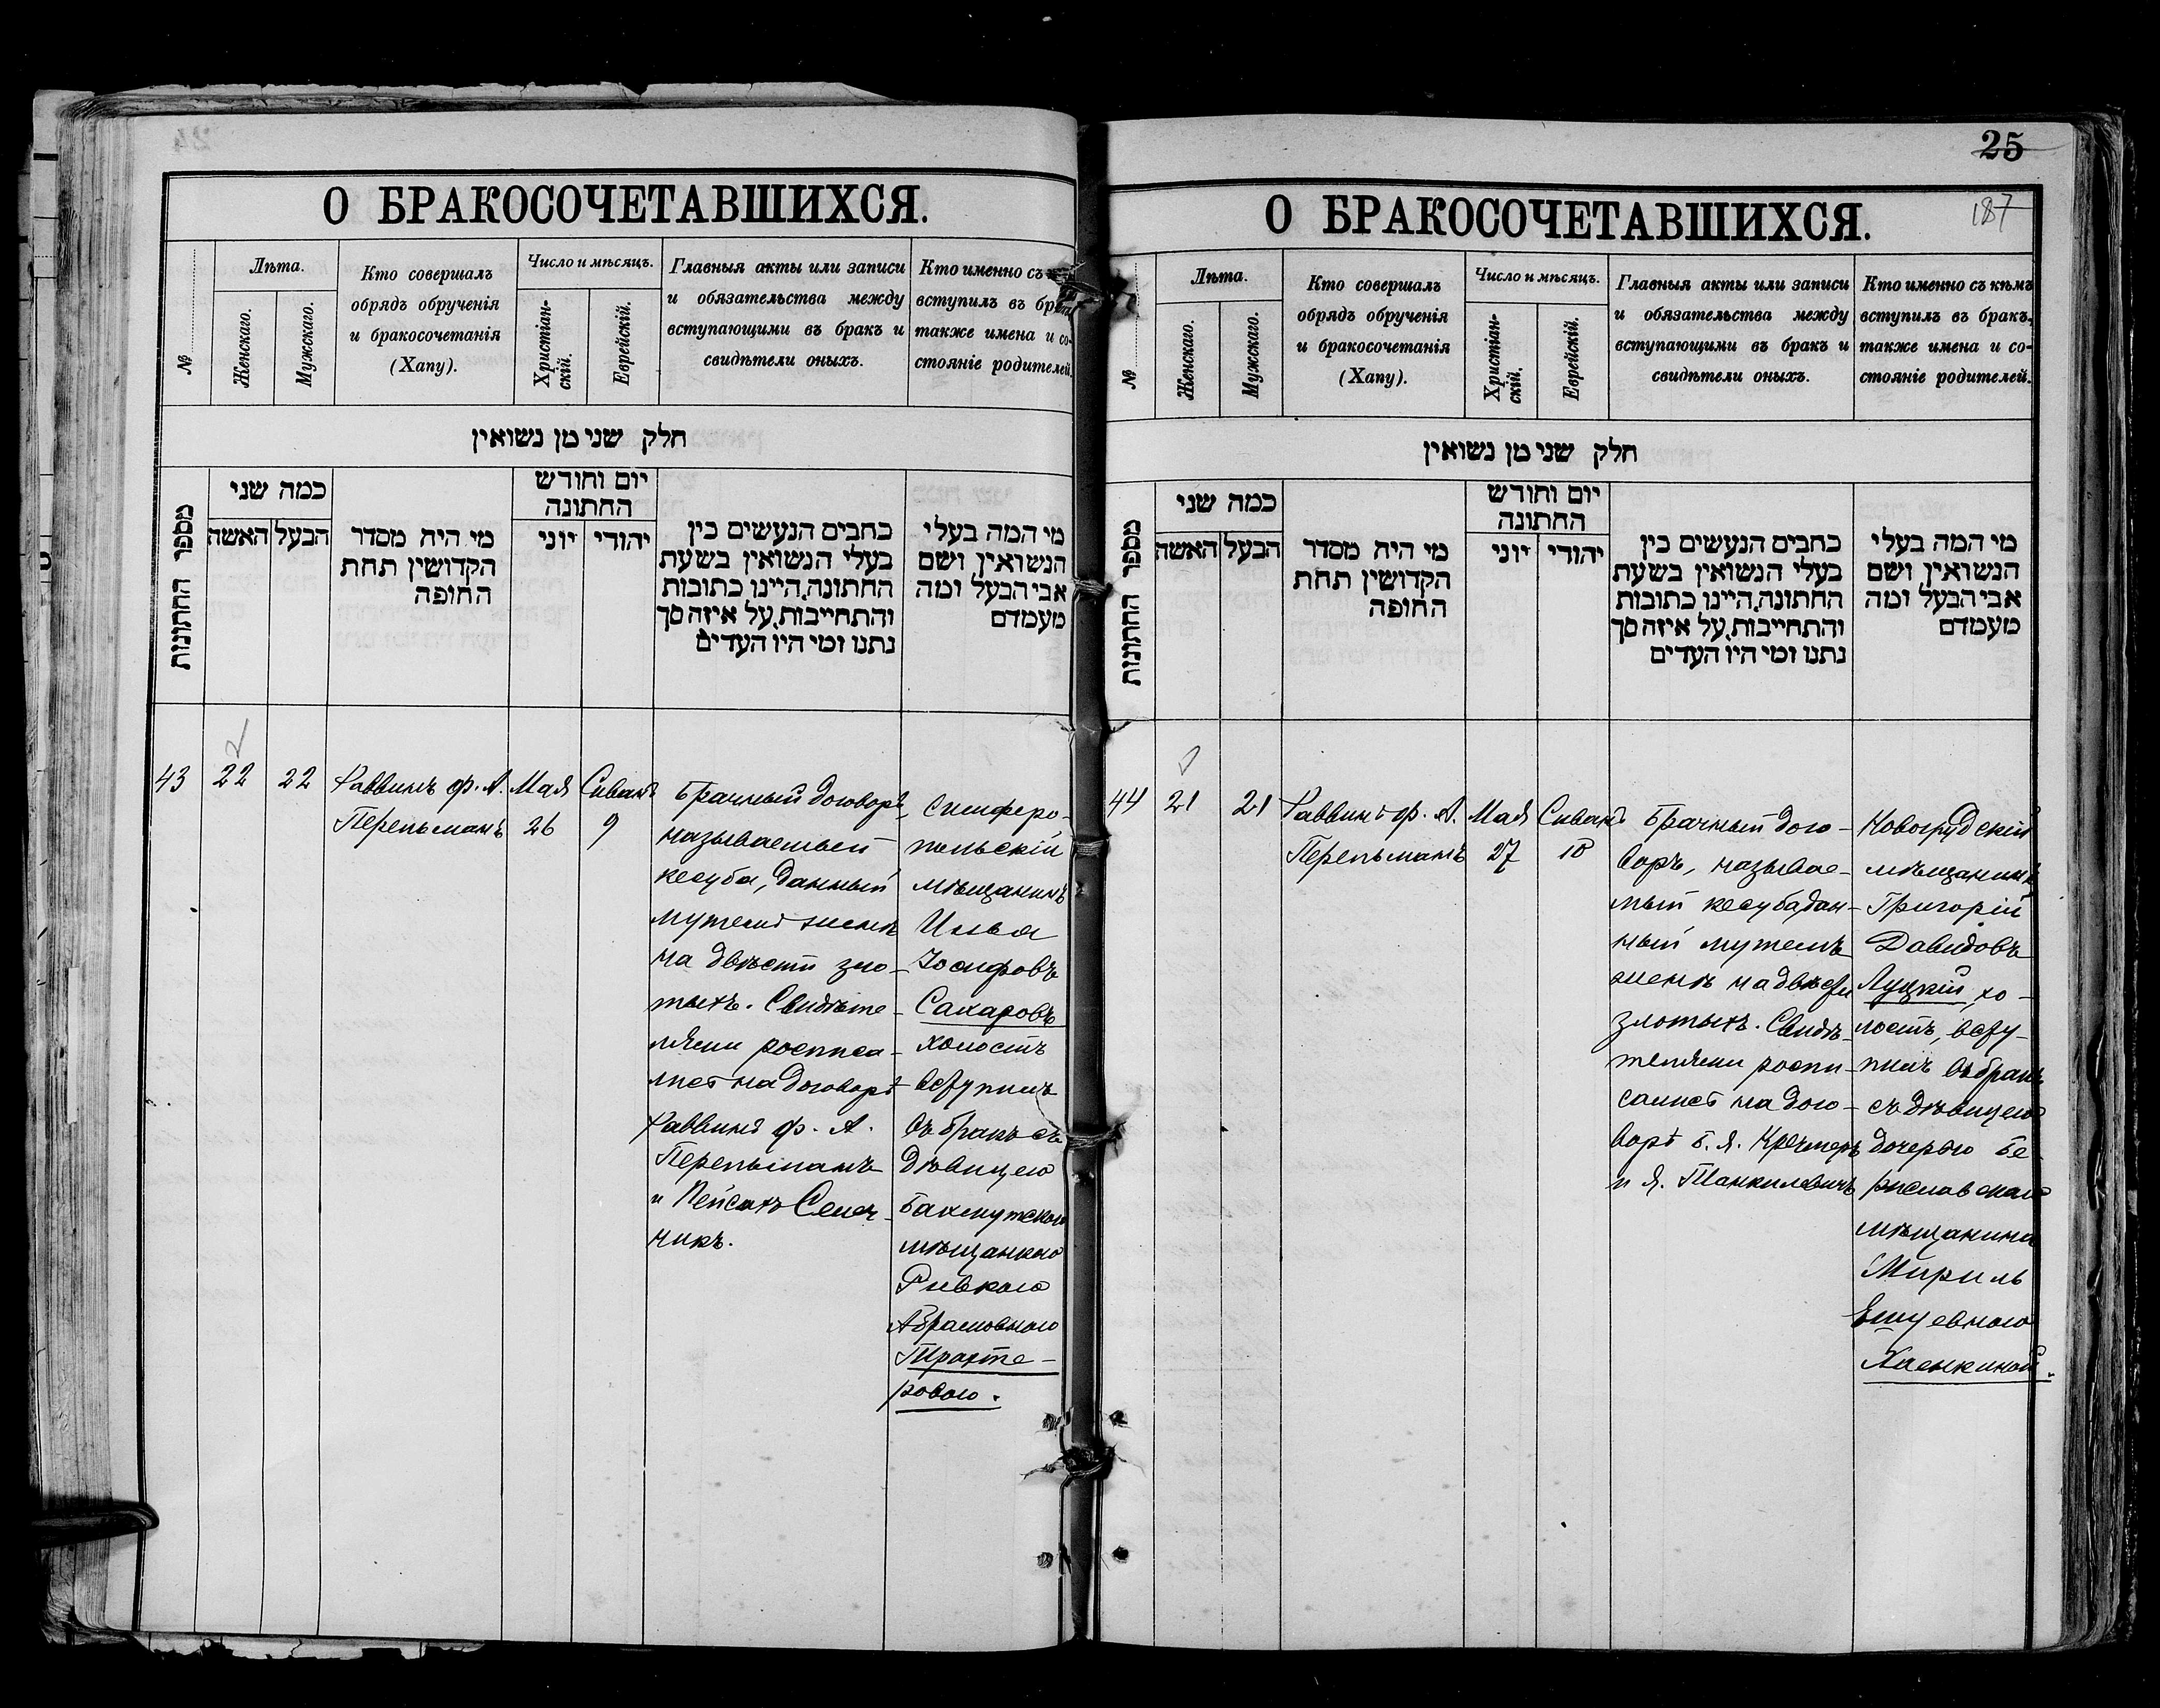 О БРАКОСОЧЕТАВШИХСЯ.
№
Лѣта.
Женскаго.
Мужскаго.
Кто совершалъ
обрядъ обрученія
и бракосочетанія
(Хапу).
Число и мѣсяцъ.
Христіан-
скій.
Еврейскій.
Главныя акты или записи
и обязательства между
вступающими въ бракъ и
свидѣтели оныхъ.
Кто именно съ
вступилъ въ бра
также имена и со-
стояніе родителей.
חלק שני מן נשואין
מספר החתונות
כמה שני
האשה
הבעל
מי היה מסדר
הקדושין תחת
החופה
יום וחודש
החתונה
יוני
יהודי
כתבים הנעשים בין
בעלי הנשואין בשעת
החתונה, היינו כתובות
והתחייבות, על איזה סך
נתנו ומי היו העדים
מי המה בעלי
הנשואין, ושם
אבי הבעל ומה
מעמדם
43
22
22
Раввинъ ф. А.
Перельманъ
Мая
26
Сиванъ
9
Брачный договоръ,
называемый
кесуба, данный
мужемъ женѣ
на двѣсти зло-
тыхъ. Свидѣте-
лями росписа-
лись на договорѣ
Раввинъ ф. А.
Перельманъ
и Пейсахъ Селеч-
никъ.
Симферо-
польскій
мѣщанинъ
Илья
Іосифовъ
Сахаровъ
холостъ
вступилъ
въ бракъ съ
дѣвицею
Бахмутскою
мѣщанкою
Ривкою
Абрамовною
Трахте-
ровою.
25
187
О БРАКОСОЧЕТАВШИХСЯ.
№
Лѣта.
Женскаго.
Мужскаго.
Кто совершалъ
обрядъ обрученія
и бракосочетанія
(Хапу).
Число и мѣсяцъ.
Христіан-
скій.
Еврейскій.
Главныя акты или записи
и обязательства между
вступающими въ бракъ и
свидѣтели оныхъ.
Кто именно съ кѣмъ
вступилъ въ бракъ,
также имена и со-
стояніе родителей.
חלק שני מן נשואין
מספר החתונות
כמה שני
האשה
הבעל
מי היה מסדר
הקדושין תחת
החופה
יום וחודש
החתונה
יוני
יהודי
כתבים הנעשים בין
בעלי הנשואין בשעת
החתונה, היינו כתובות
והתחייבות, על איזה סך
נתנו ומי היו העדים
מי המה בעלי
הנשואין, ושם
אבי הבעל ומה
מעמדם
44
21
21
Раввинъ ф. А.
Перельманъ
Мая
27
Сиванъ
10
Брачный дого-
воръ, называе-
мый кесуба дан-
ный мужемъ
женѣ на двѣсти
злотыхъ. Свидѣ-
телями роспи-
сались на дого-
ворѣ Б. Я. Кречмеръ
и Я. Танкилевичъ
Новогрудскій
мѣщанинъ
Григорій
Давидовъ
Луцкій, хо-
лостъ, всту-
пилъ въ бракъ
съ дѣвицею
дочерью Бе-
риславскаго
мѣщанина
Мириль
Ешуевною
Хаенкиной.